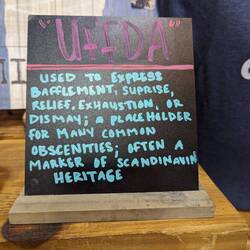 "UFFDA"
USED TO EXPRESS
BAFFLEMENT, SUPRISE,
RELIEF, EXHAUSTION, OR
DISMAY; A PLACEHOLDER
FOR MANY COMMON
OBSCENITIES; OFTEN A
MARKER OF SCANDINAVIAN
HERITAGE